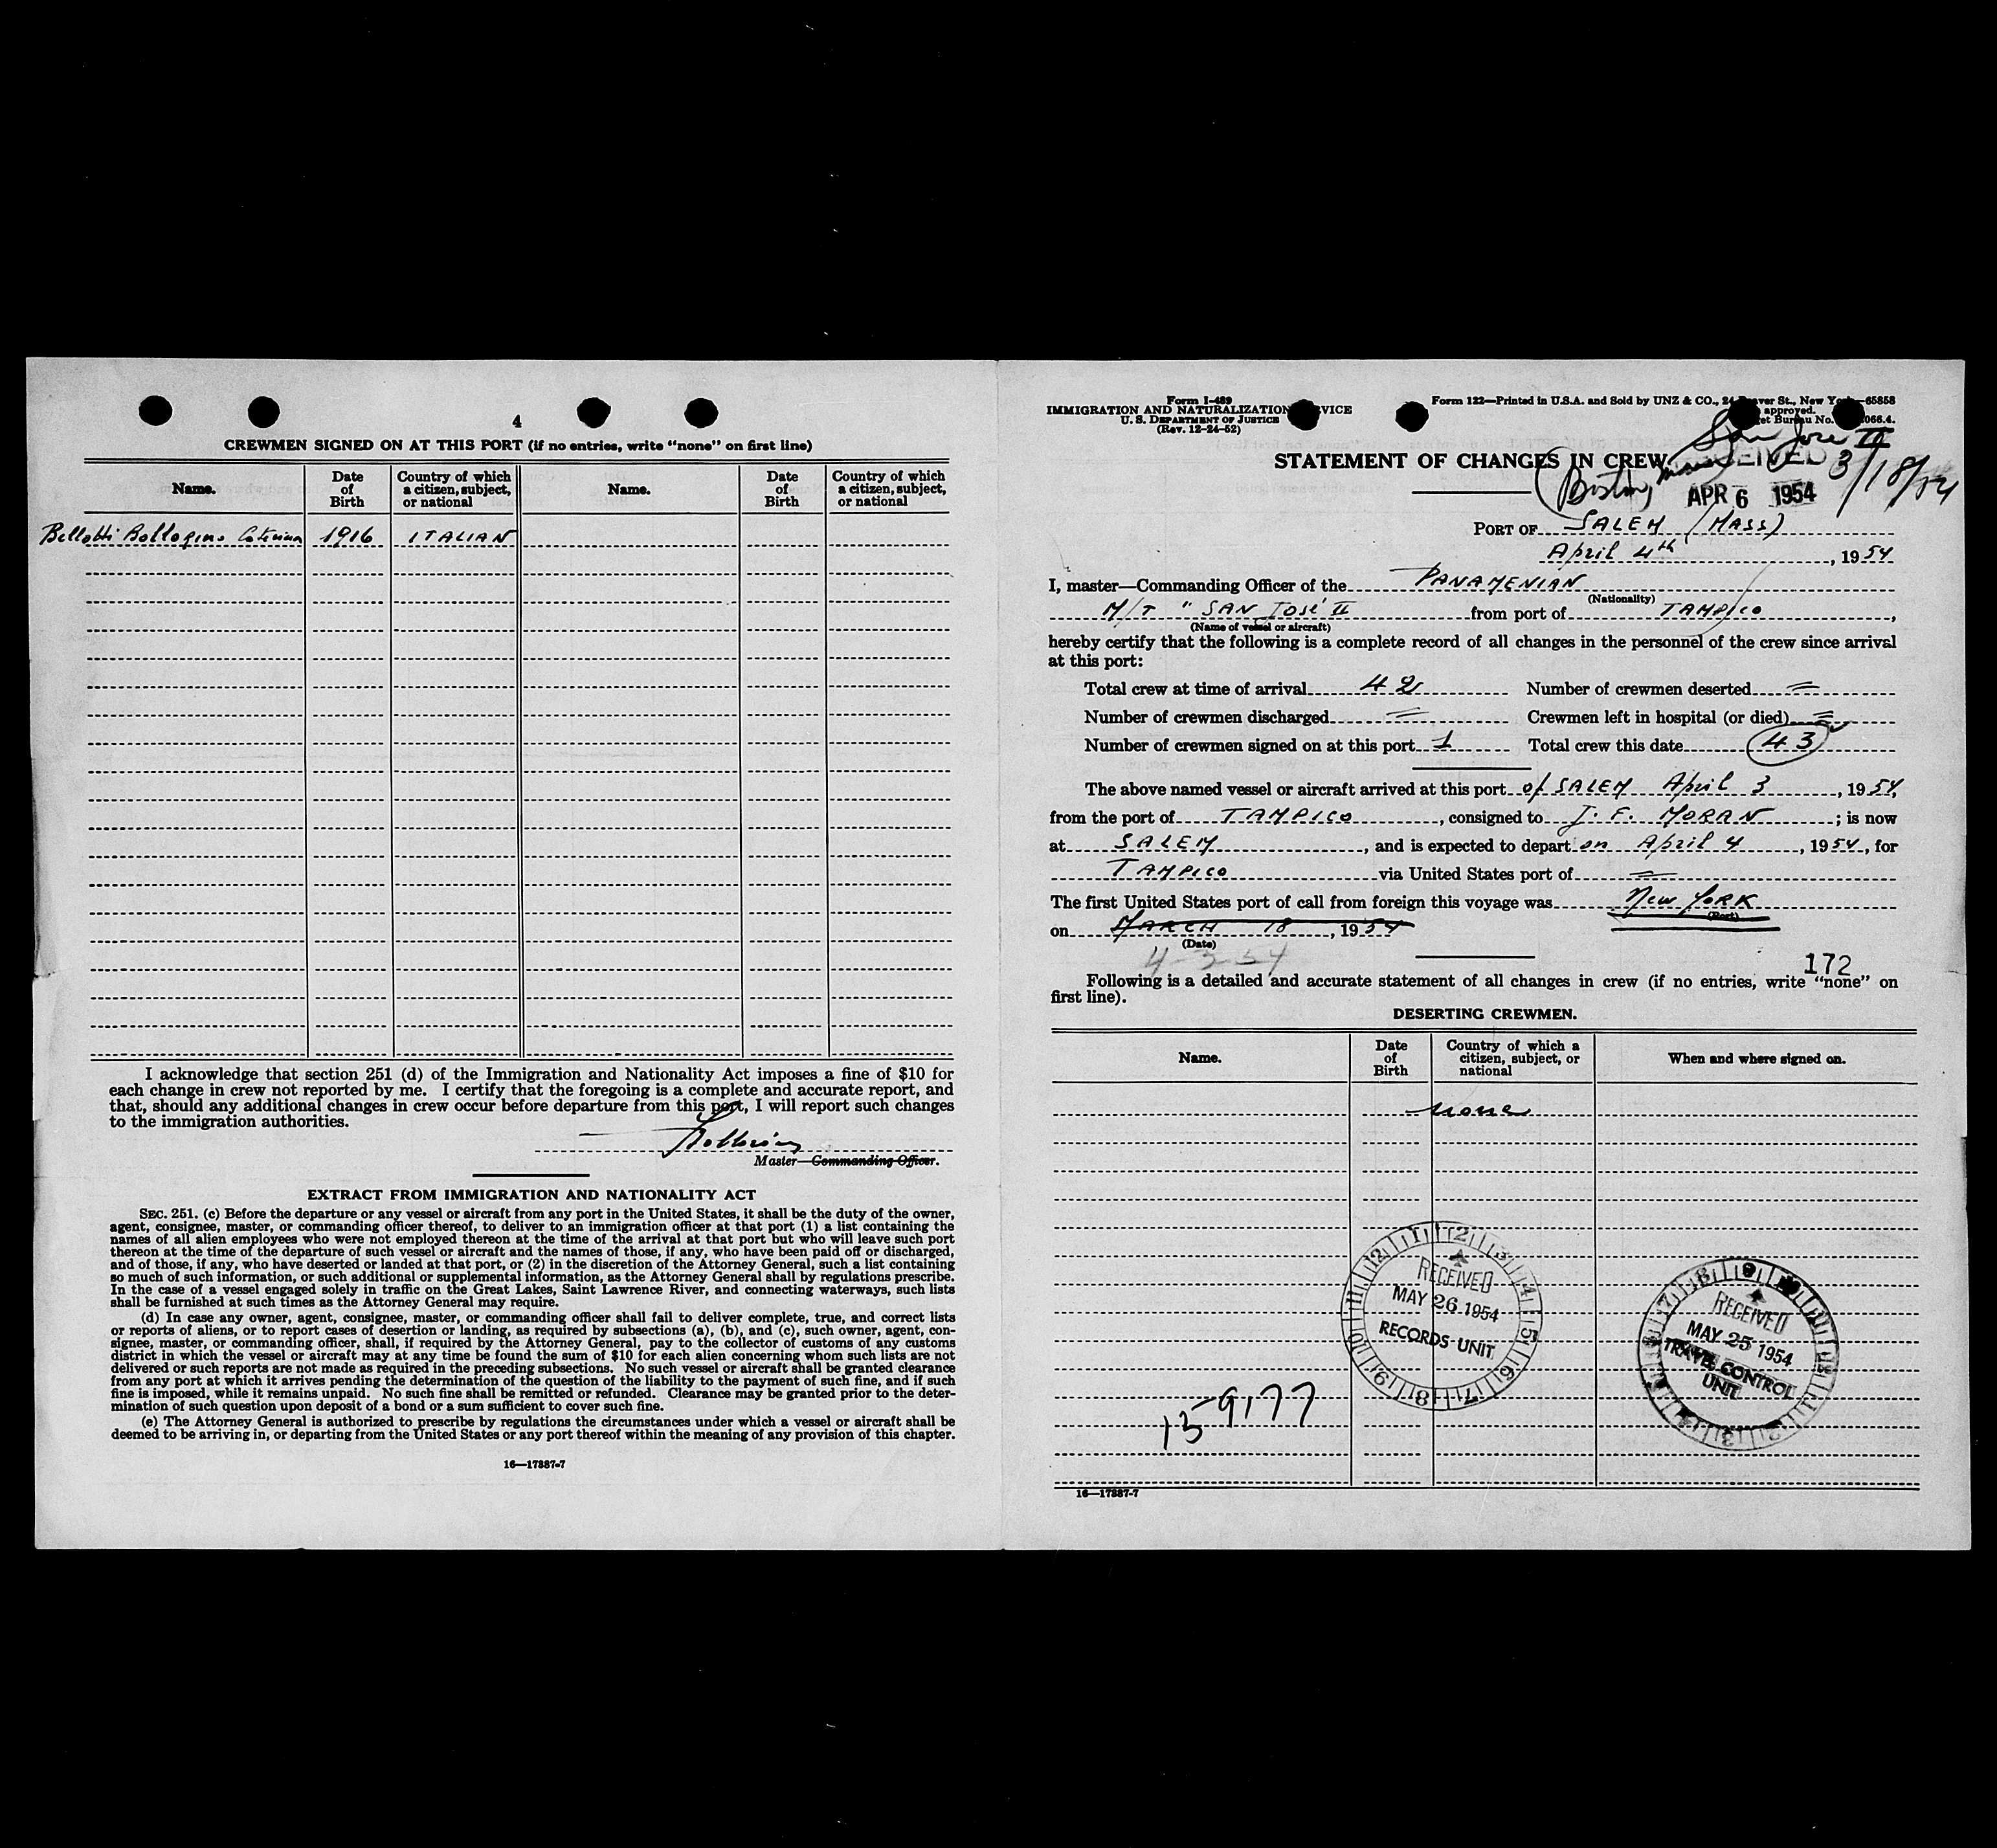 4
CREWMEN SIGNED ON AT THIS PORT (if no entries, write "none" on first line)
Name. Date of Birth Country of which a citizen, subject, or national Name. Date of Birth Country of which a citizen, subject, or national
Bellotti Bollogino Caterina 1916 ITALIAN
I acknowledge that section 251 (d) of the Immigration and Nationality Act imposes a fine of $10 for
each change in crew not reported by me. I certify that the foregoing is a complete and accurate report, and
that, should any additional changes in crew occur before departure from this port, I will report such changes
to the immigration authorities.
Master—Commanding Officer.
EXTRACT FROM IMMIGRATION AND NATIONALITY ACT
SEC. 251. (c) Before the departure or any vessel or aircraft from any port in the United States, it shall be the duty of the owner,
agent, consignee, master, or commanding officer thereof, to deliver to an immigration officer at that port (1) a list containing the
names of all alien employees who were not employed thereon at the time of the arrival at that port but who will leave such port
thereon at the time of the departure of such vessel or aircraft and the names of those, if any, who have been paid off or discharged,
and of those, if any, who have deserted or landed at that port, or (2) in the discretion of the Attorney General, such a list containing
so much of such information, or such additional or supplemental information, as the Attorney General shall by regulations prescribe.
In the case of a vessel engaged solely in traffic on the Great Lakes, Saint Lawrence River, and connecting waterways, such lists
shall be furnished at such times as the Attorney General may require.
(d) In case any owner, agent, consignee, master, or commanding officer shall fail to deliver complete, true, and correct lists
or reports of aliens, or to report cases of desertion or landing, as required by subsections (a), (b), and (c), such owner, agent, con-
signee, master, or commanding officer, shall, if required by the Attorney General, pay to the collector of customs of any customs
district in which the vessel or aircraft may at any time be found the sum of $10 for each alien concerning whom such lists are not
delivered or such reports are not made as required in the preceding subsections. No such vessel or aircraft shall be granted clearance
from any port at which it arrives pending the determination of the question of the liability to the payment of such fine, and if such
fine is imposed, while it remains unpaid. No such fine shall be remitted or refunded. Clearance may be granted prior to the deter-
mination of such question upon deposit of a bond or a sum sufficient to cover such fine.
(e) The Attorney General is authorized to prescribe by regulations the circumstances under which a vessel or aircraft shall be
deemed to be arriving in, or departing from the United States or any port thereof within the meaning of any provision of this chapter.
16—17887-7
Form I-489
IMMIGRATION AND NATURALIZATION
U. S. DEPARTMENT OF JUSTICE
(Rev. 12-24-52)
Form 122—Printed in U.S.A. and Sold by UNZ & CO., 24 St., New 65858
approved.
No. 066.4.
San Jose II
STATEMENT OF CHANGES IN CREW
RECEIVED
(Boston, Mass 3/18/54
APR 6 1954
PORT OF SALEM (MASS)
April 4th, 1954
I, master—Commanding Officer of the PANAMENIAN
(Nationality)
M/T "SAN José II from port of TAMPICO,
(Name of vessel or aircraft)
hereby certify that the following is a complete record of all changes in the personnel of the crew since arrival
at this port:
Total crew at time of arrival 42 Number of crewmen deserted =
Number of crewmen discharged = Crewmen left in hospital (or died) =
Number of crewmen signed on at this port 1 Total crew this date 43
The above named vessel or aircraft arrived at this port of SALEM April 3, 1954,
from the port of TAMPICO, consigned to J. F. MORAN; is now
at SALEM, and is expected to depart on April 4, 1954, for
TAMPICO via United States port of =
The first United States port of call from foreign this voyage was New York
(Port)
on MARCH 18, 1954
(Date)
4-3-54
172
Following is a detailed and accurate statement of all changes in crew (if no entries, write "none" on
first line).
DESERTING CREWMEN.
Name. Date of Birth Country of which a citizen, subject, or national When and where signed on.
none
RECEIVED
MAY 26 1954
RECORDS UNIT
RECEIVED
MAY 25 1954
TRAVEL CONTROL
UNIT
15-9177
16—17887-7